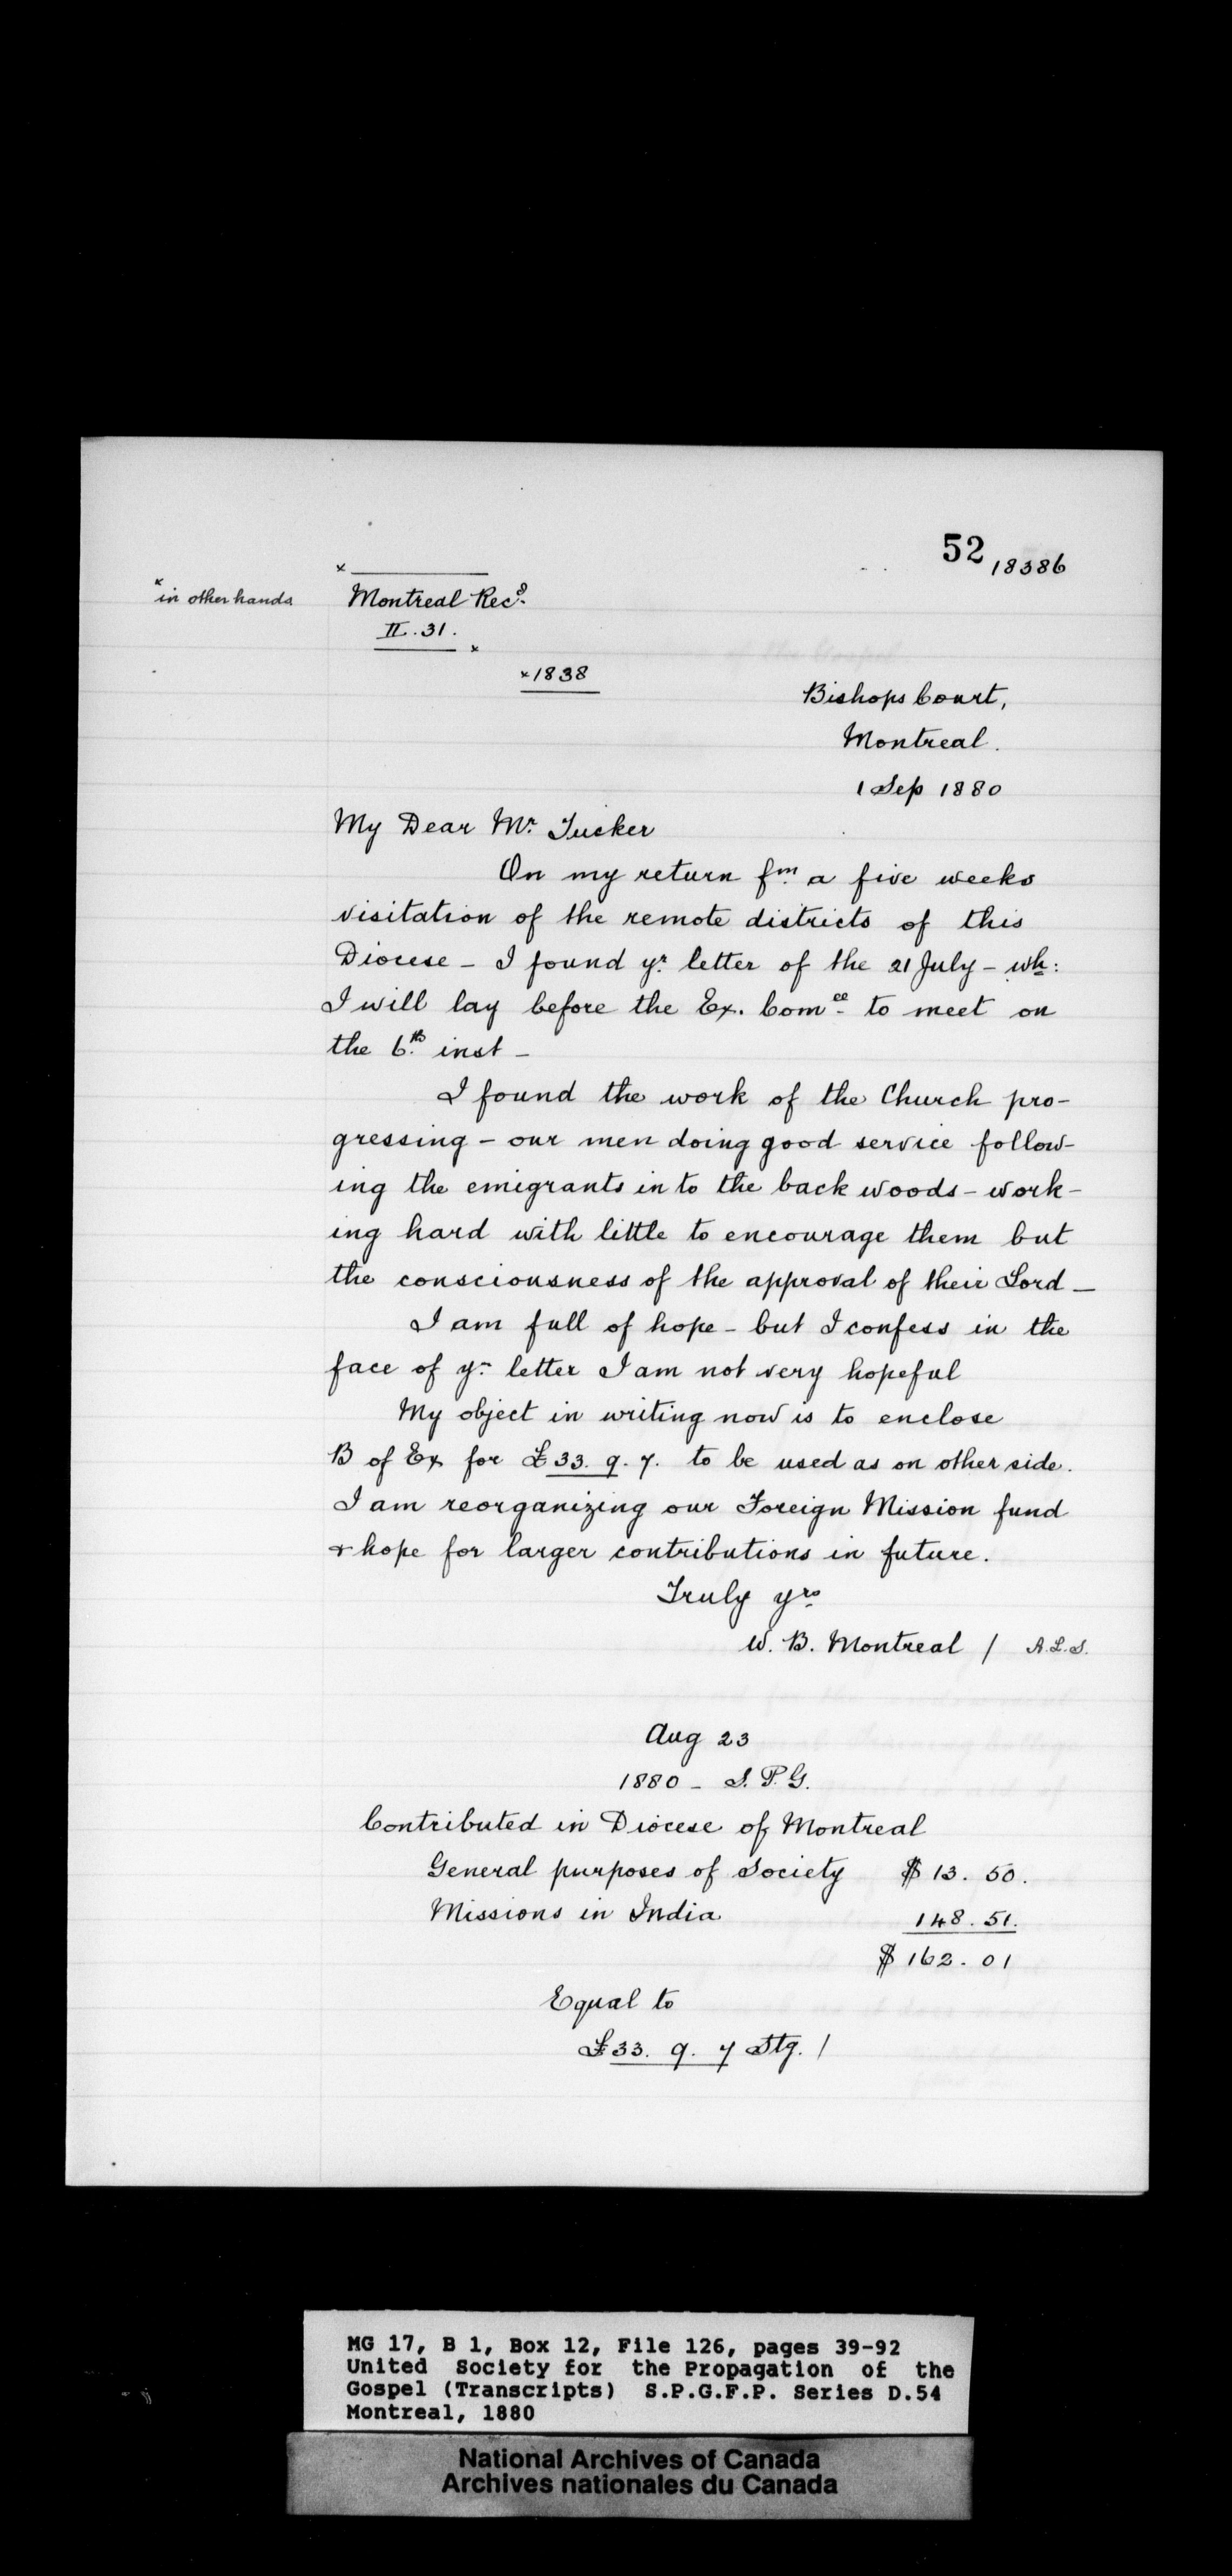 52 18386
x in other hands
x Montreal Recd.
II. 31. x
x 1838
Bishops Court,
Montreal.
1 Sep 1880
My Dear Mr. Tucker
On my return fm. a five weeks
visitation of the remote districts of this
Diocese – I found yr. letter of the 21 July – wh:
I will lay before the Ex. Comee. to meet on
the 6th. inst –
I found the work of the Church pro-
gressing – our men doing good service follow-
ing the emigrants in to the back woods – work-
ing hard with little to encourage them but
the consciousness of the approval of their Lord –
I am full of hope – but I confess in the
face of yr. letter I am not very hopeful
My object in writing now is to enclose
B of Ex for £33. 9. 7. to be used as on other side.
I am reorganizing our Foreign Mission fund
& hope for larger contributions in future.
Truly yrs.
W. B. Montreal / A.L.S.
Aug 23
1880 – S.P.G.
Contributed in Diocese of Montreal
General purposes of Society $13. 50.
Missions in India 148. 51.
$162. 01
Equal to
£33. 9. 7 Stg. /
MG 17, B 1, Box 12, File 126, pages 39-92
United Society for the Propagation of the
Gospel (Transcripts) S.P.G.F.P. Series D.54
Montreal, 1880
National Archives of Canada
Archives nationales du Canada